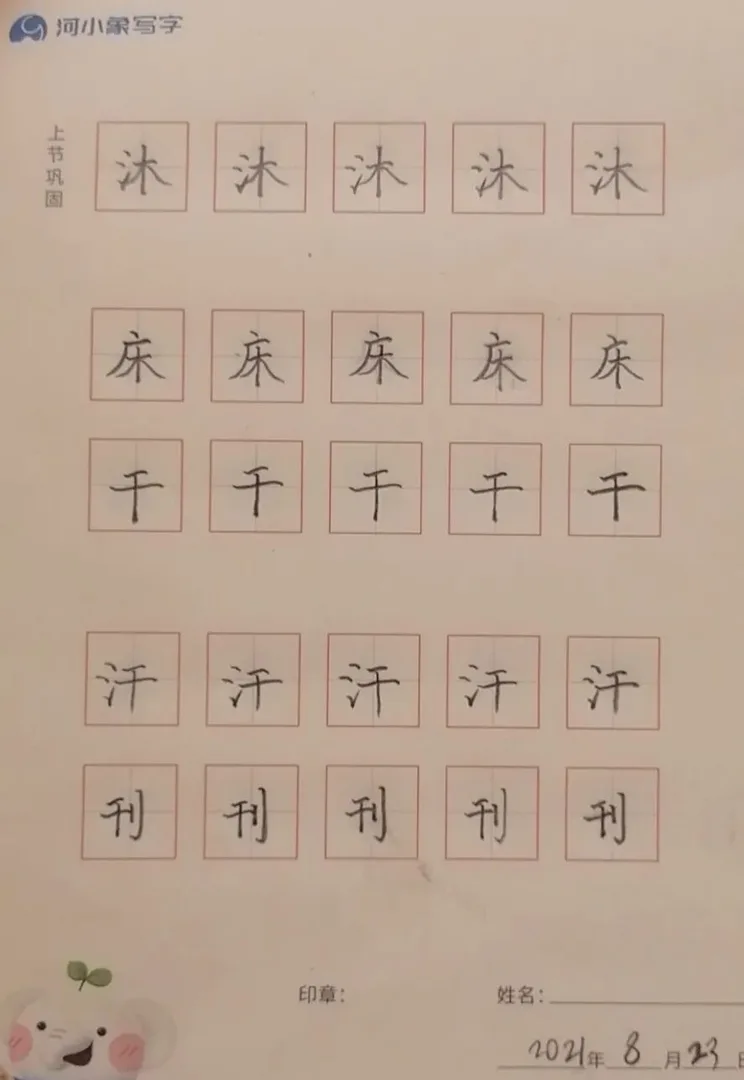 河小象写字
上节巩固
沐 沐 沐 沐 沐
床 床 床 床 床
干 干 干 干 干
汗 汗 汗 汗 汗
刊 刊 刊 刊 刊
印章： 姓名：
2021年 8月23日